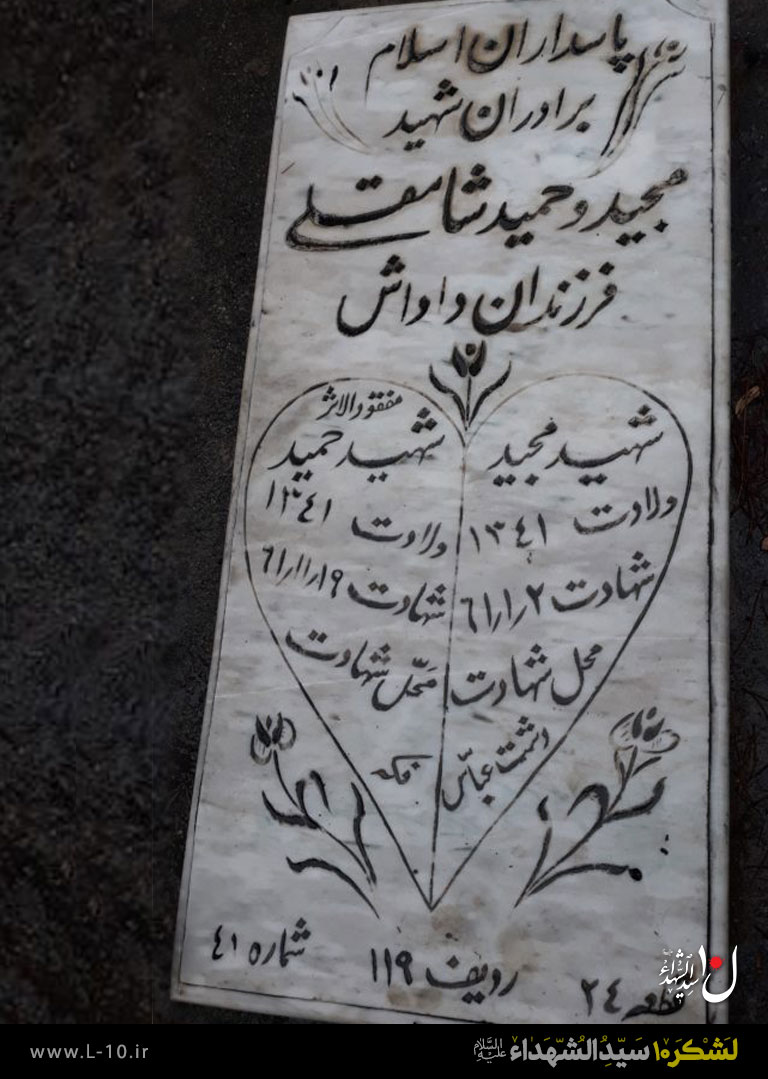 پاسداران اسلام
برادران شهید
مجید و حمید شامقلی
فرزندان داداش
شهید مجید
ولادت ۱۳۴۱
شهادت ۶۱٫۱٫۲
محل شهادت
دشت عباس
مفقودالاثر
شهید حمید
ولادت ۱۳۴۱
شهادت ۶۱٫۱۱٫۱۹
محل شهادت
فکه
قطعه ۲۴ ردیف ۱۱۹ شماره ۴۱
سیدالشهداء
لَشکَر۱۰ سَیِّدُالشُّهَداء عَلَیْهِ السَّلام
www.L-10.ir